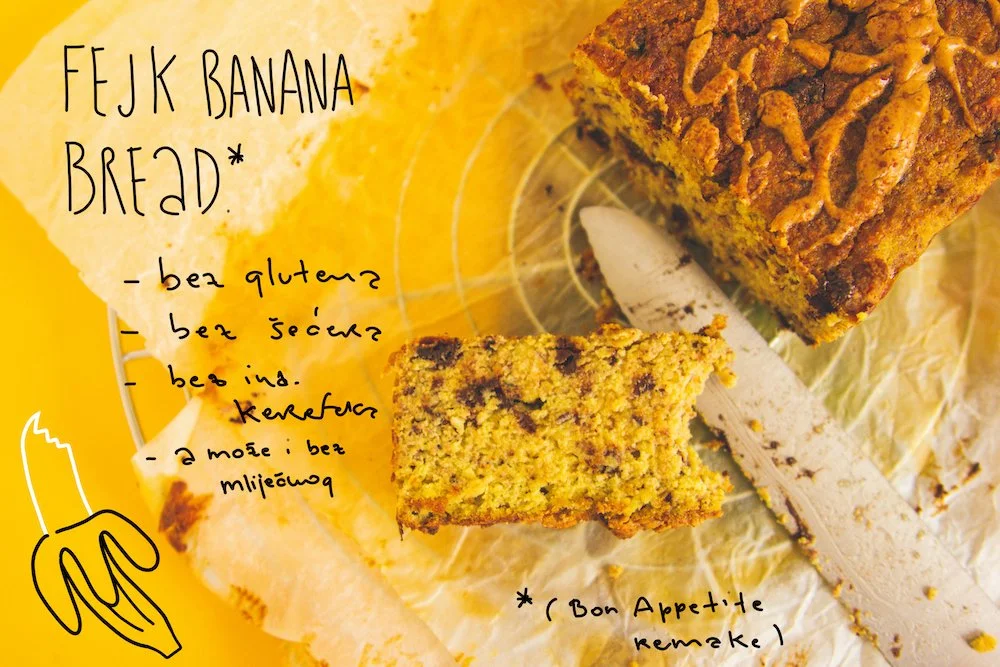 FEJK BANANA
BREAD*
- bez glutena
- bez šećera
- bez ind.
kvasca
- a može i bez
mliječnog
* (Bon Appetite
remake)